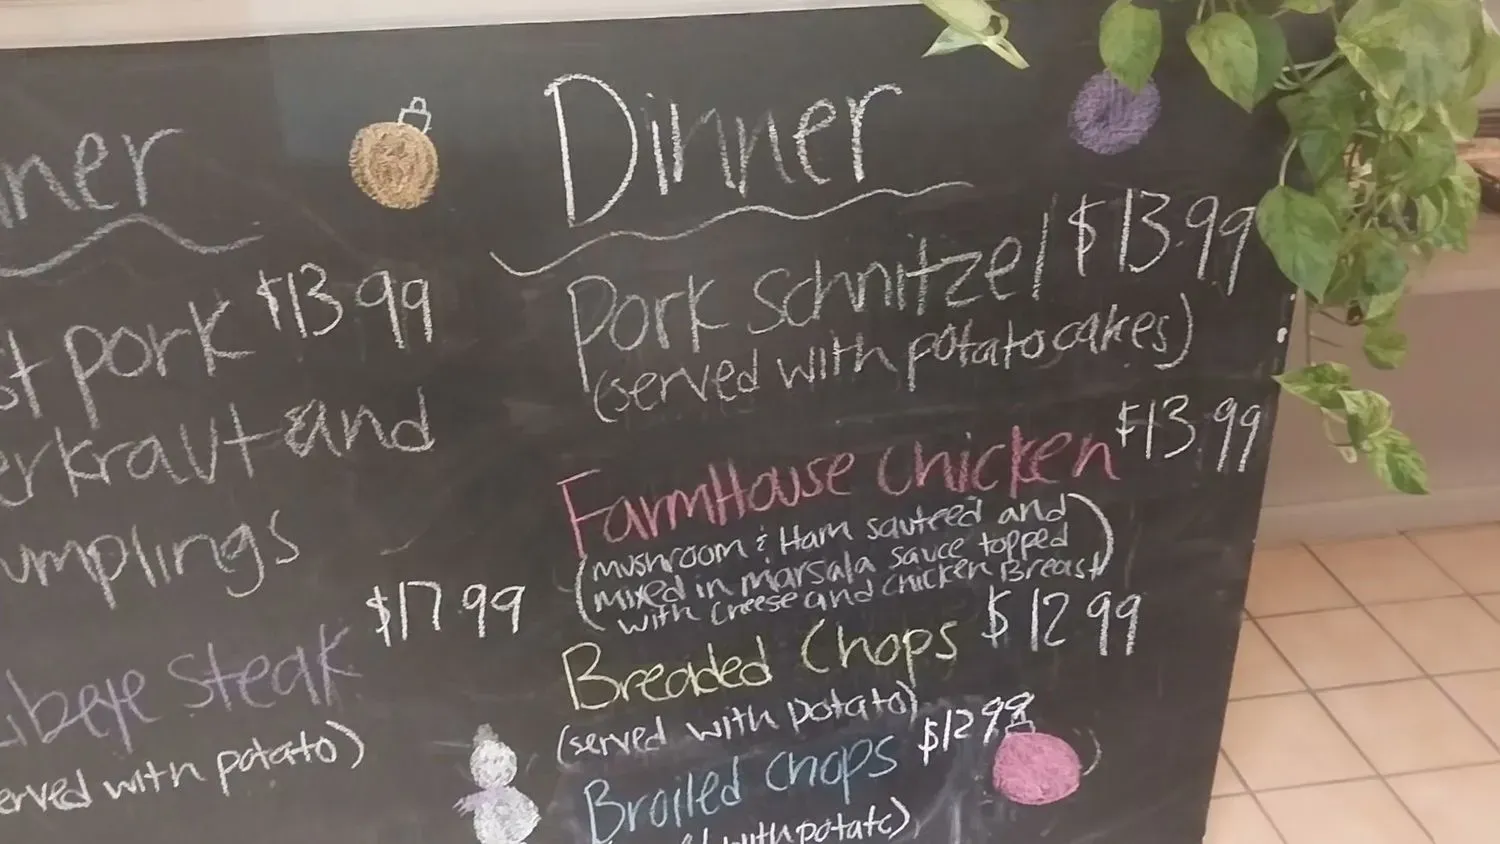 $13.99
pork
and
$17.99
steak
with potato)
Dinner
Pork Schnitzel $13.99
(served with potato cakes)
FarmHouse Chicken $13.99
(mushroom & Ham sauteed and
mixed in marsala sauce topped
with cheese and chicken Breast)
Breaded Chops $12.99
(served with potato)
Broiled Chops $12.99
with potato)